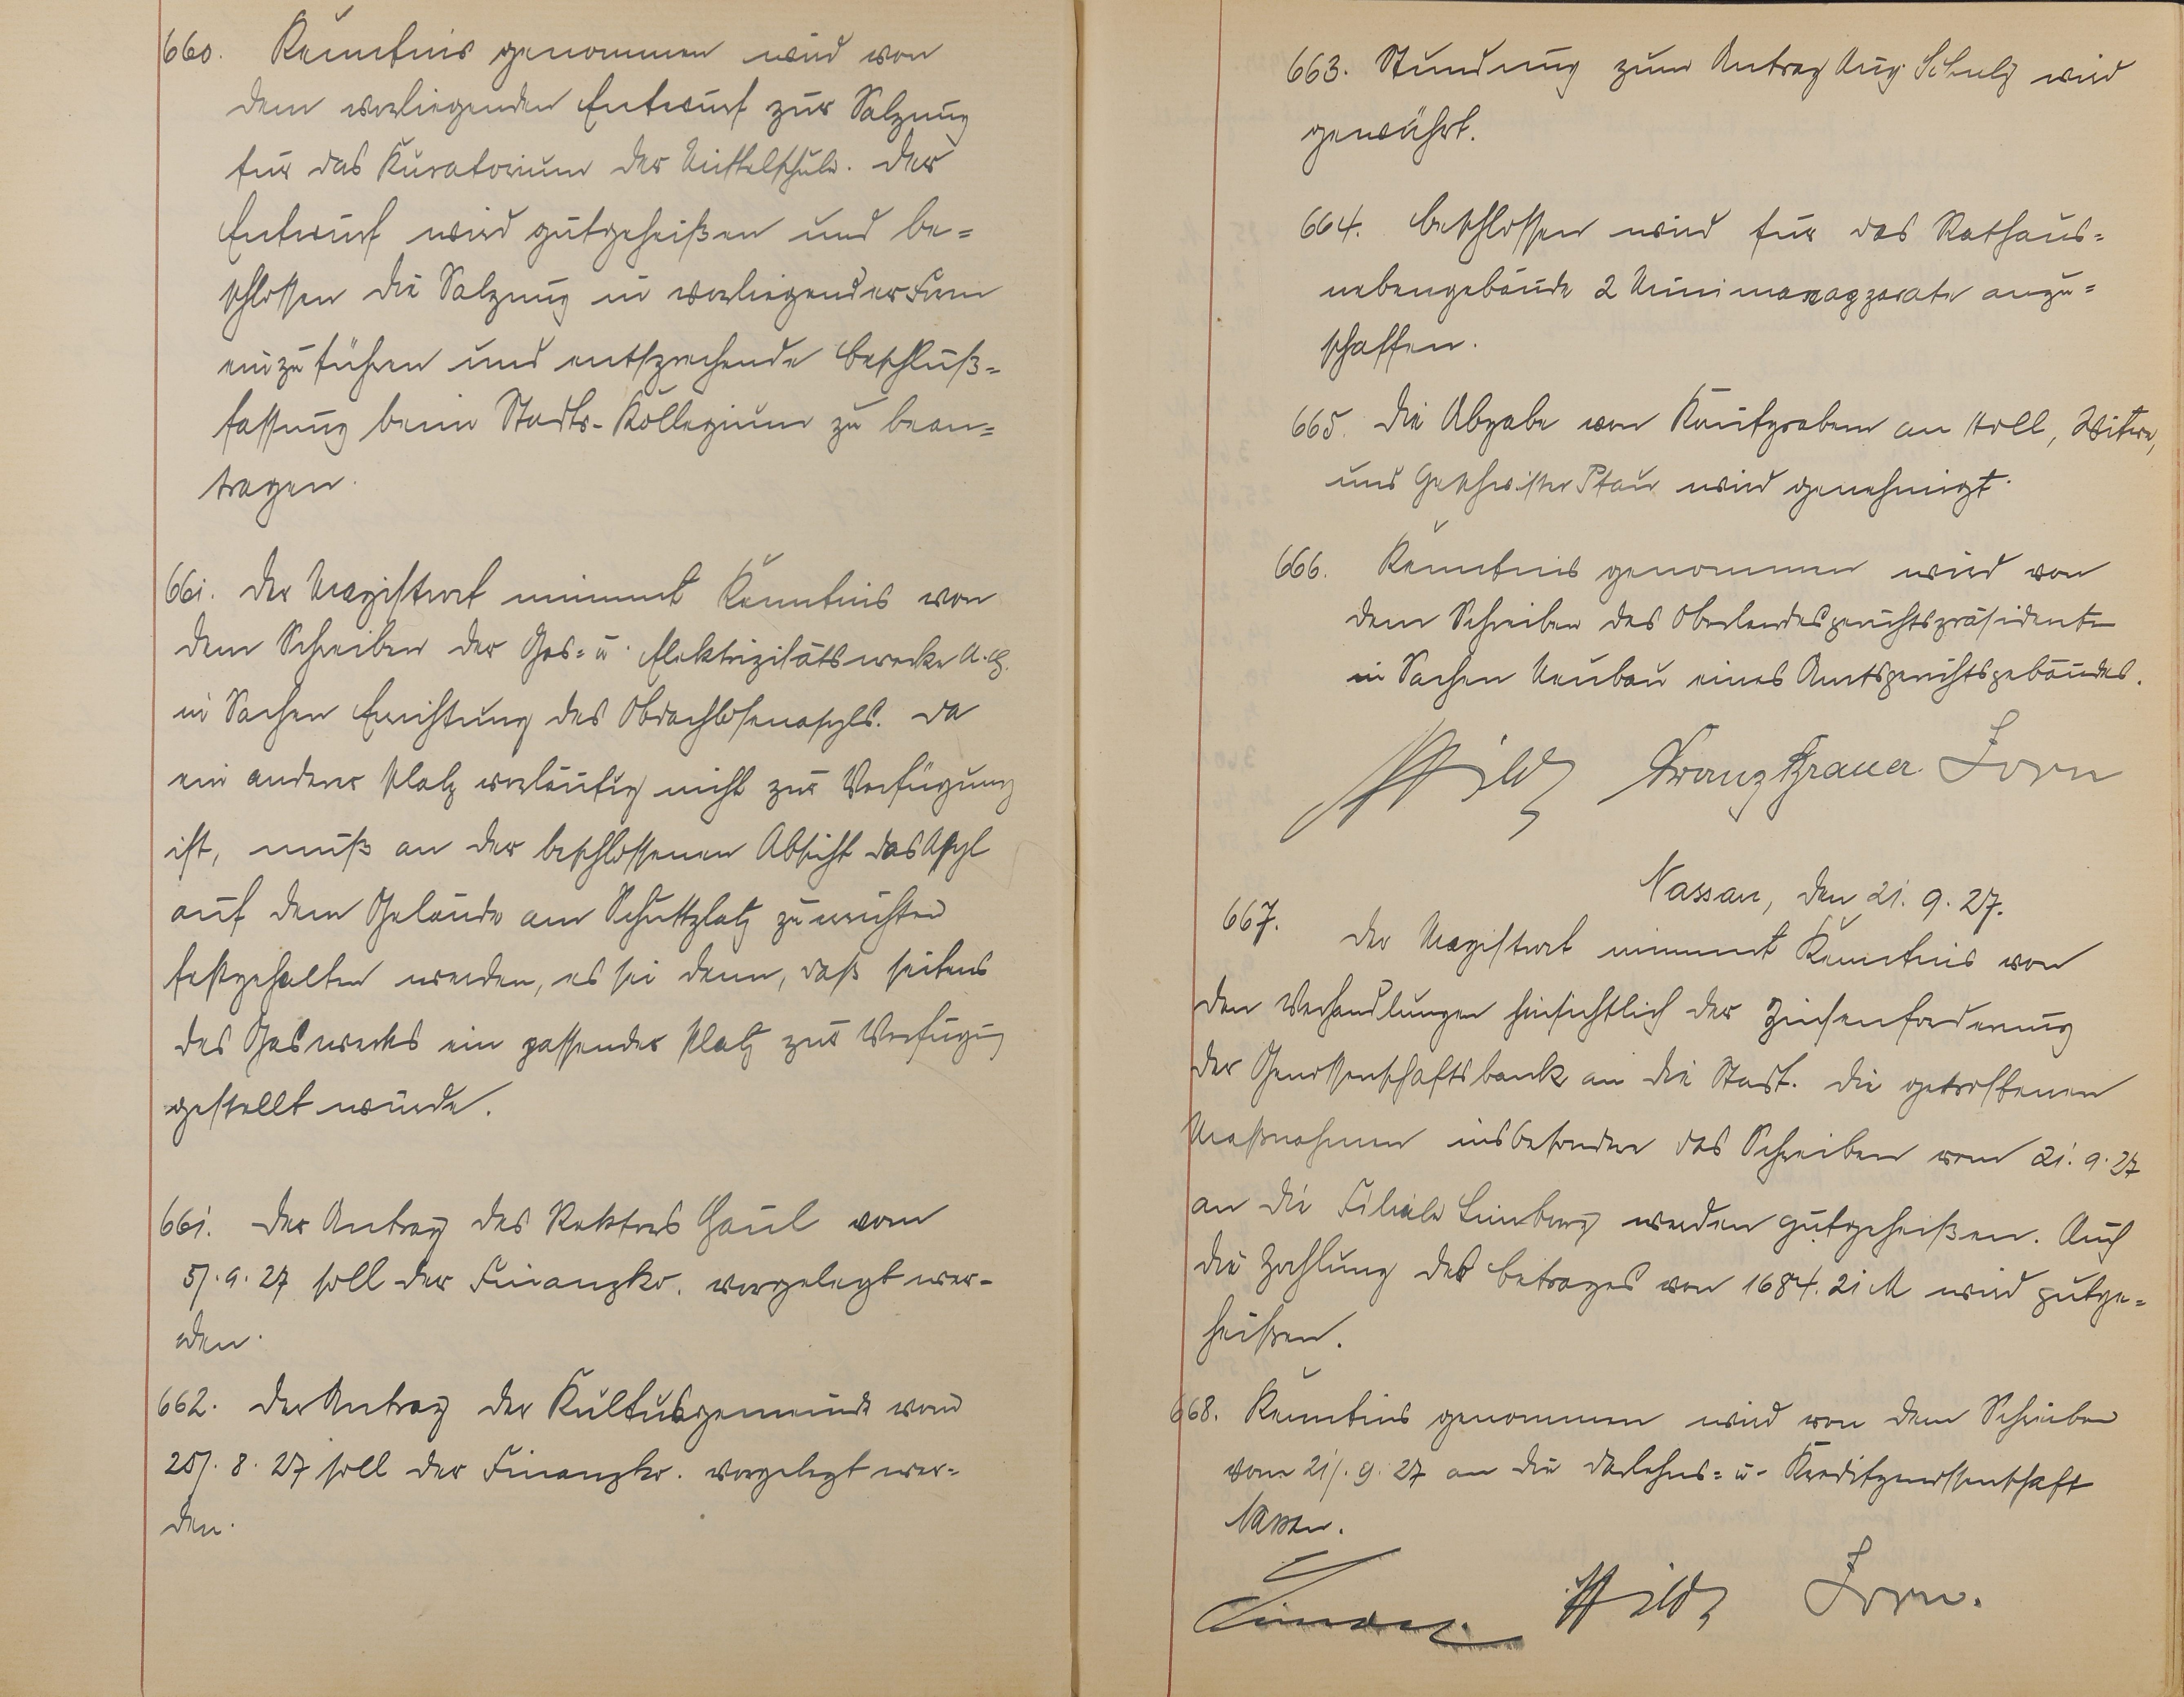 660. Kenntnis genommen wird von
dem vorliegenden Entwurf zur Satzung
für das Kuratorium der Mittelschule. Der
Entwurf wird gutgeheißen und be=
schlossen die Satzung in vorliegender Form
einzuführen und entsprechende Beschluß=
fassung beim Stadts-Kollegium zu bean=
tragen.
661. Der Magistrat nimmt Kenntnis von
dem Schreiben der Gas= u. Elektrizitätswerke A.G.
in Sachen Errichtung des Obdachlosenasyls. Da
ein anderer Platz vorläufig nicht zur Verfügung
ist, muß an der beschlossenen Absicht das Asyl
auf dem Gelände am Schuttplatz zu errichten
festgehalten werden, es sei denn, daß seitens
des Gaswerks ein passender Platz zur Verfügung
gestellt würde.
661. Der Antrag des Rektors Gaul vom
5.9.27 soll der Finanzko. vorgelegt wer-
den.
662. Der Antrag der Kultusgemeinde vom
25.8.27 soll der Finanzko. vorgelegt wer=
den.
663. Stundung zum Antrag Aug. Schulz wird
gewährt.
664. Beschlossen wird für das Rathaus=
nebengebäude 2 Minimaxapparate anzu=
schaffen.
665. Die Abgabe von Kaufgräbern an Holl, Witwe,
und Geschwister Pfau wird genehmigt.
666. Kenntnis genommen wird von
dem Schreiben des Oberlandesgerichtspräsidenten
in Sachen Neubau eines Amtsgerichtsgebäudes.
Franz Grauer Zorn
Nassau, den 21.9.27.
667. Der Magistrat nimmt Kenntnis von
den Verhandlungen hinsichtlich der Zinsenforderung
der Genossenschaftsbank an die Stadt. Die getroffenen
Maßnahmen insbesondere das Schreiben vom 21.9.27
an die Filiale Limburg werden gutgeheißen. Auch
die Zahlung des Betrages von 1684.21 M wird gutge=
heißen.
668. Kenntnis genommen wird von dem Schreiben
vom 21.9.27 an die Darlehns= u. Kreditgenossenschaft
Nassau.
Zorn.